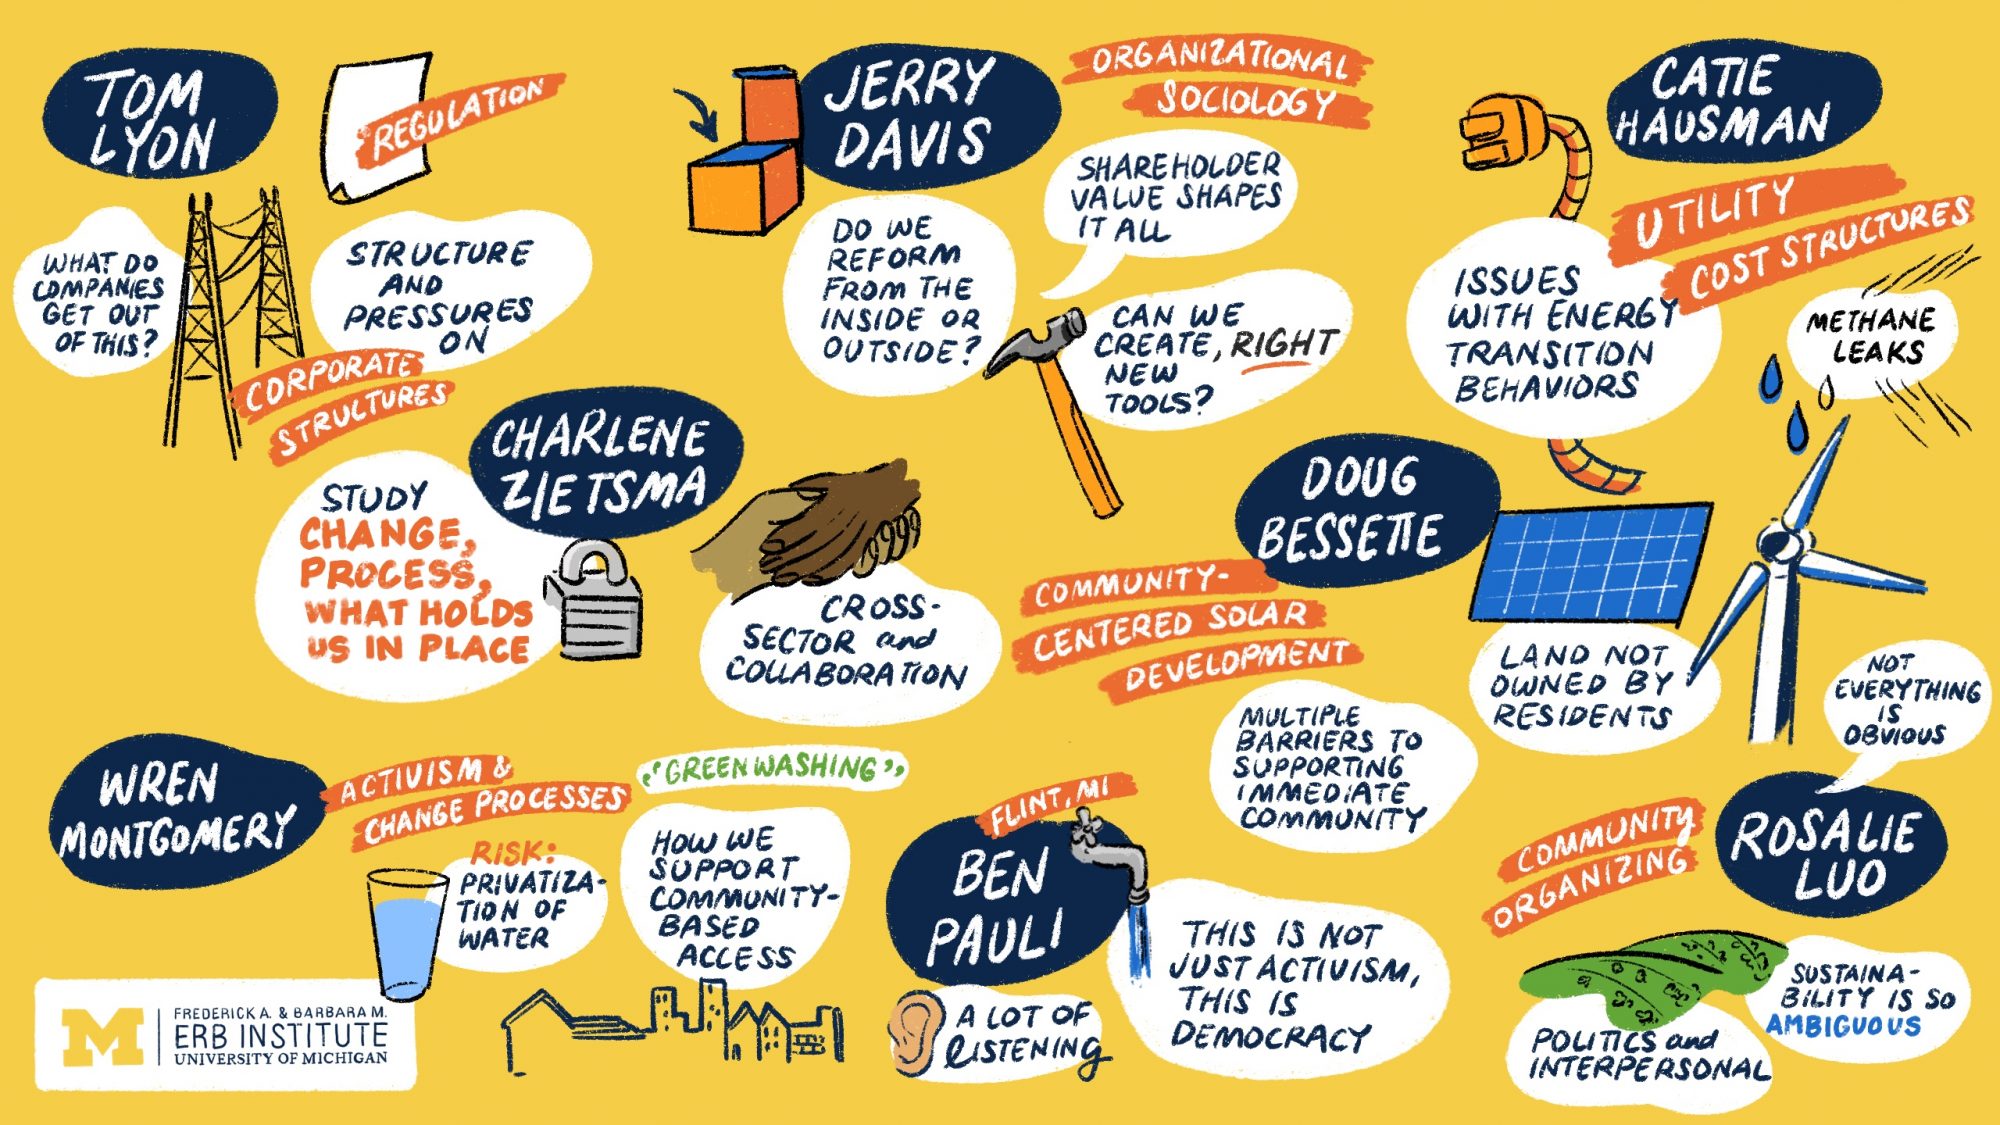 TOM
LYON
REGULATION
WHAT DO
COMPANIES
GET OUT
OF THIS?
STRUCTURE
AND
PRESSURES
ON
CORPORATE
STRUCTURES
JERRY
DAVIS
ORGANIZATIONAL
SOCIOLOGY
SHAREHOLDER
VALUE SHAPES
IT ALL
DO WE
REFORM
FROM THE
INSIDE OR
OUTSIDE?
CAN WE
CREATE, RIGHT
NEW
TOOLS?
CATIE
HAUSMAN
UTILITY
COST STRUCTURES
ISSUES
WITH ENERGY
TRANSITION
BEHAVIORS
METHANE
LEAKS
CHARLENE
ZIETSMA
STUDY
CHANGE,
PROCESS,
WHAT HOLDS
US IN PLACE
CROSS-
SECTOR and
COLLABORATION
DOUG
BESSETTE
COMMUNITY-
CENTERED SOLAR
DEVELOPMENT
LAND NOT
OWNED BY
RESIDENTS
MULTIPLE
BARRIERS TO
SUPPORTING
IMMEDIATE
COMMUNITY
WREN
MONTGOMERY
ACTIVISM &
CHANGE PROCESSES
"GREENWASHING"
RISK:
PRIVATIZA-
TION OF
WATER
HOW WE
SUPPORT
COMMUNITY-
BASED
ACCESS
FLINT, MI
BEN
PAULI
THIS IS NOT
JUST ACTIVISM,
THIS IS
DEMOCRACY
A LOT OF
LISTENING
NOT
EVERYTHING
IS
OBVIOUS
ROSALIE
LUO
COMMUNITY
ORGANIZING
SUSTAINA-
BILITY IS SO
AMBIGUOUS
POLITICS and
INTERPERSONAL
M
FREDERICK A. & BARBARA M.
ERB INSTITUTE
UNIVERSITY OF MICHIGAN